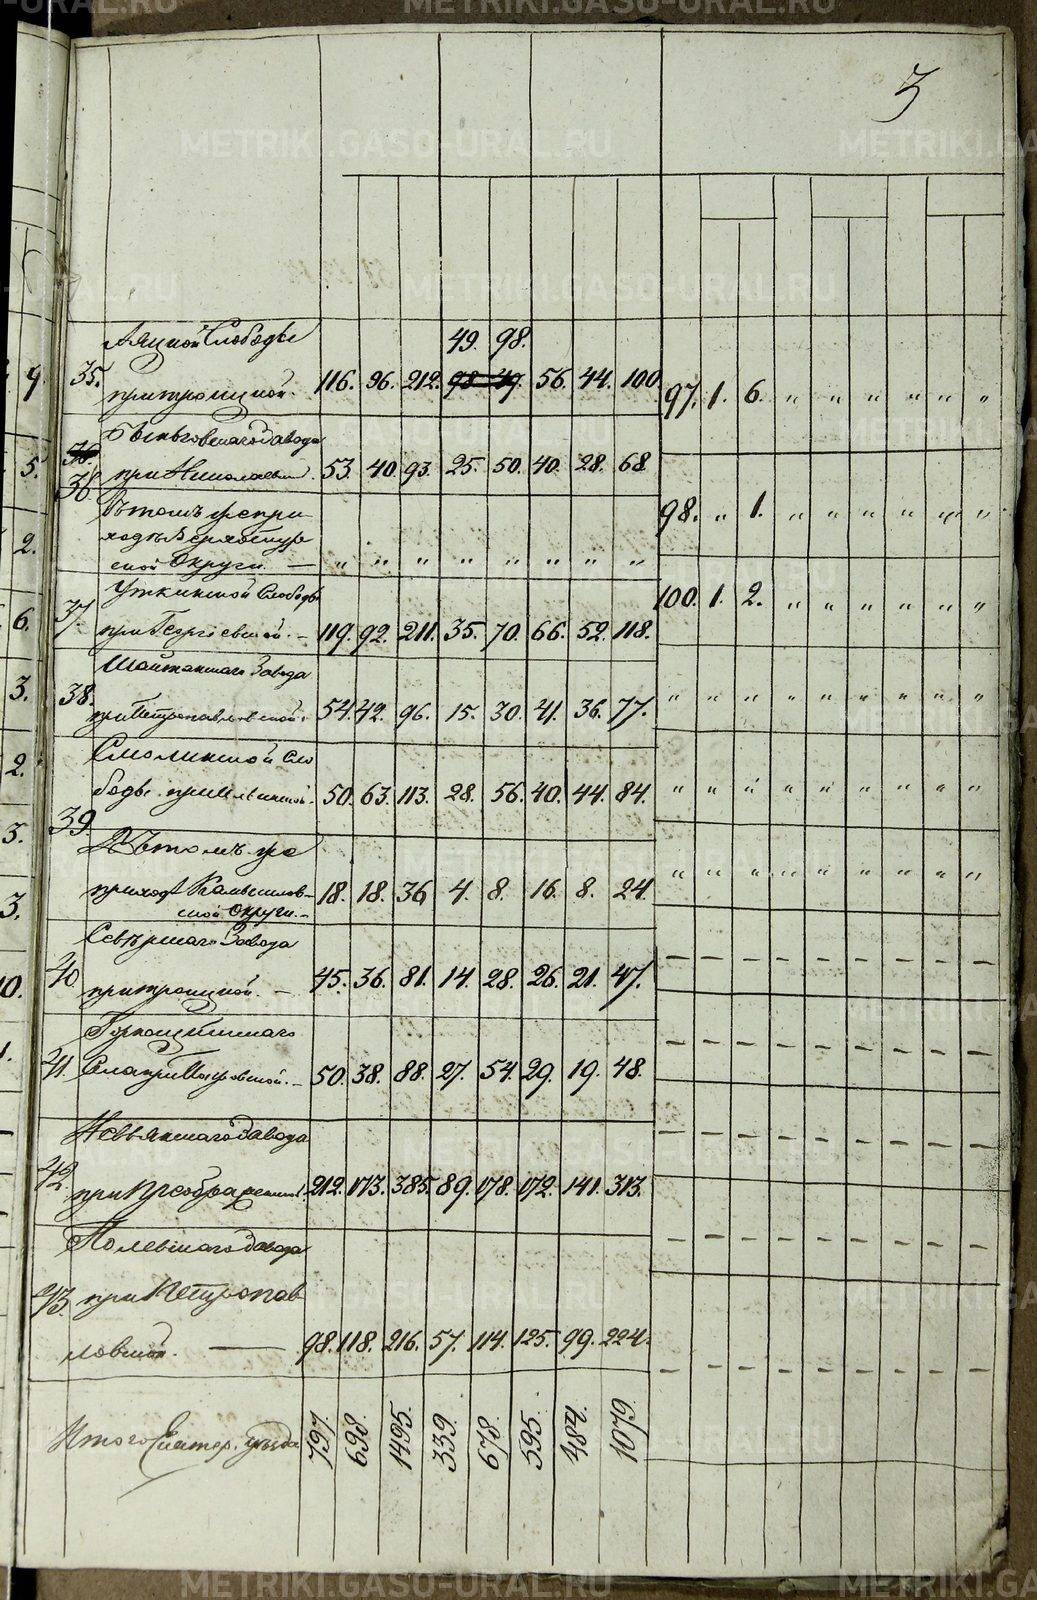 3
49. 98.
Аяцкой Слободы
35. при троицкой. 116. 96. 212. 98. 49. 56. 44. 100. 97. 1. 6. „ „ „ „ „ „
Быньговскаго Завода
36. при Николаевск. 53. 40. 93. 25. 50. 40. 28. 68 98. „ 1. „ „ „ „ „ „
Въ томъ же при-
ходѣ Верхотур-
ской Округи. — „ „ „ „ „ „ „ „
Уткинской Слободы 100. 1. 2. „ „ „ „ „ „
37. при Георгіевской. – 119. 92. 211. 35. 70. 66. 52. 118.
Шайтанскаго Завода
38. при Петропавловской. 54. 42. 96. 15. 30. 41. 36. 77. „ „ „ „ „ „ „ „ „
Смолинской Сло
боды при Ильинской. 50. 63. 113. 28. 56. 40. 44. 84. „ „ „ „ „ „ „ „ „
39. Въ томъ же
приходѣ Камышлов-
ской Округи. – 18. 18. 36 4. 8. 16. 8. 24. „ „ „ „ „ „ „ „ „
Сѣверскаго Завода
40. при троицкой. – 45. 36. 81. 14. 28. 26. 21. 47. – – – – – – – – –
Горнощитскаго
41. Села при Покровской. – 50. 38. 88. 27. 54. 29. 19. 48. – – – – – – – – –
Невьянскаго Завода
42. при Преображенской. 212. 173. 385. 89. 178. 172. 141. 313. – – – – – – – – –
Полевскаго Завода
43. при Петропав
ловской. — 98. 118. 216. 57. 114. 125. 99. 224. – – – – – – – – –
Итого Екатер. уѣзда 797. 698. 1495. 339. 678. 595. 484. 1079.
9.
5.
2.
6.
3.
2.
3.
3.
10.
METRIKI.GASO-URAL.RU